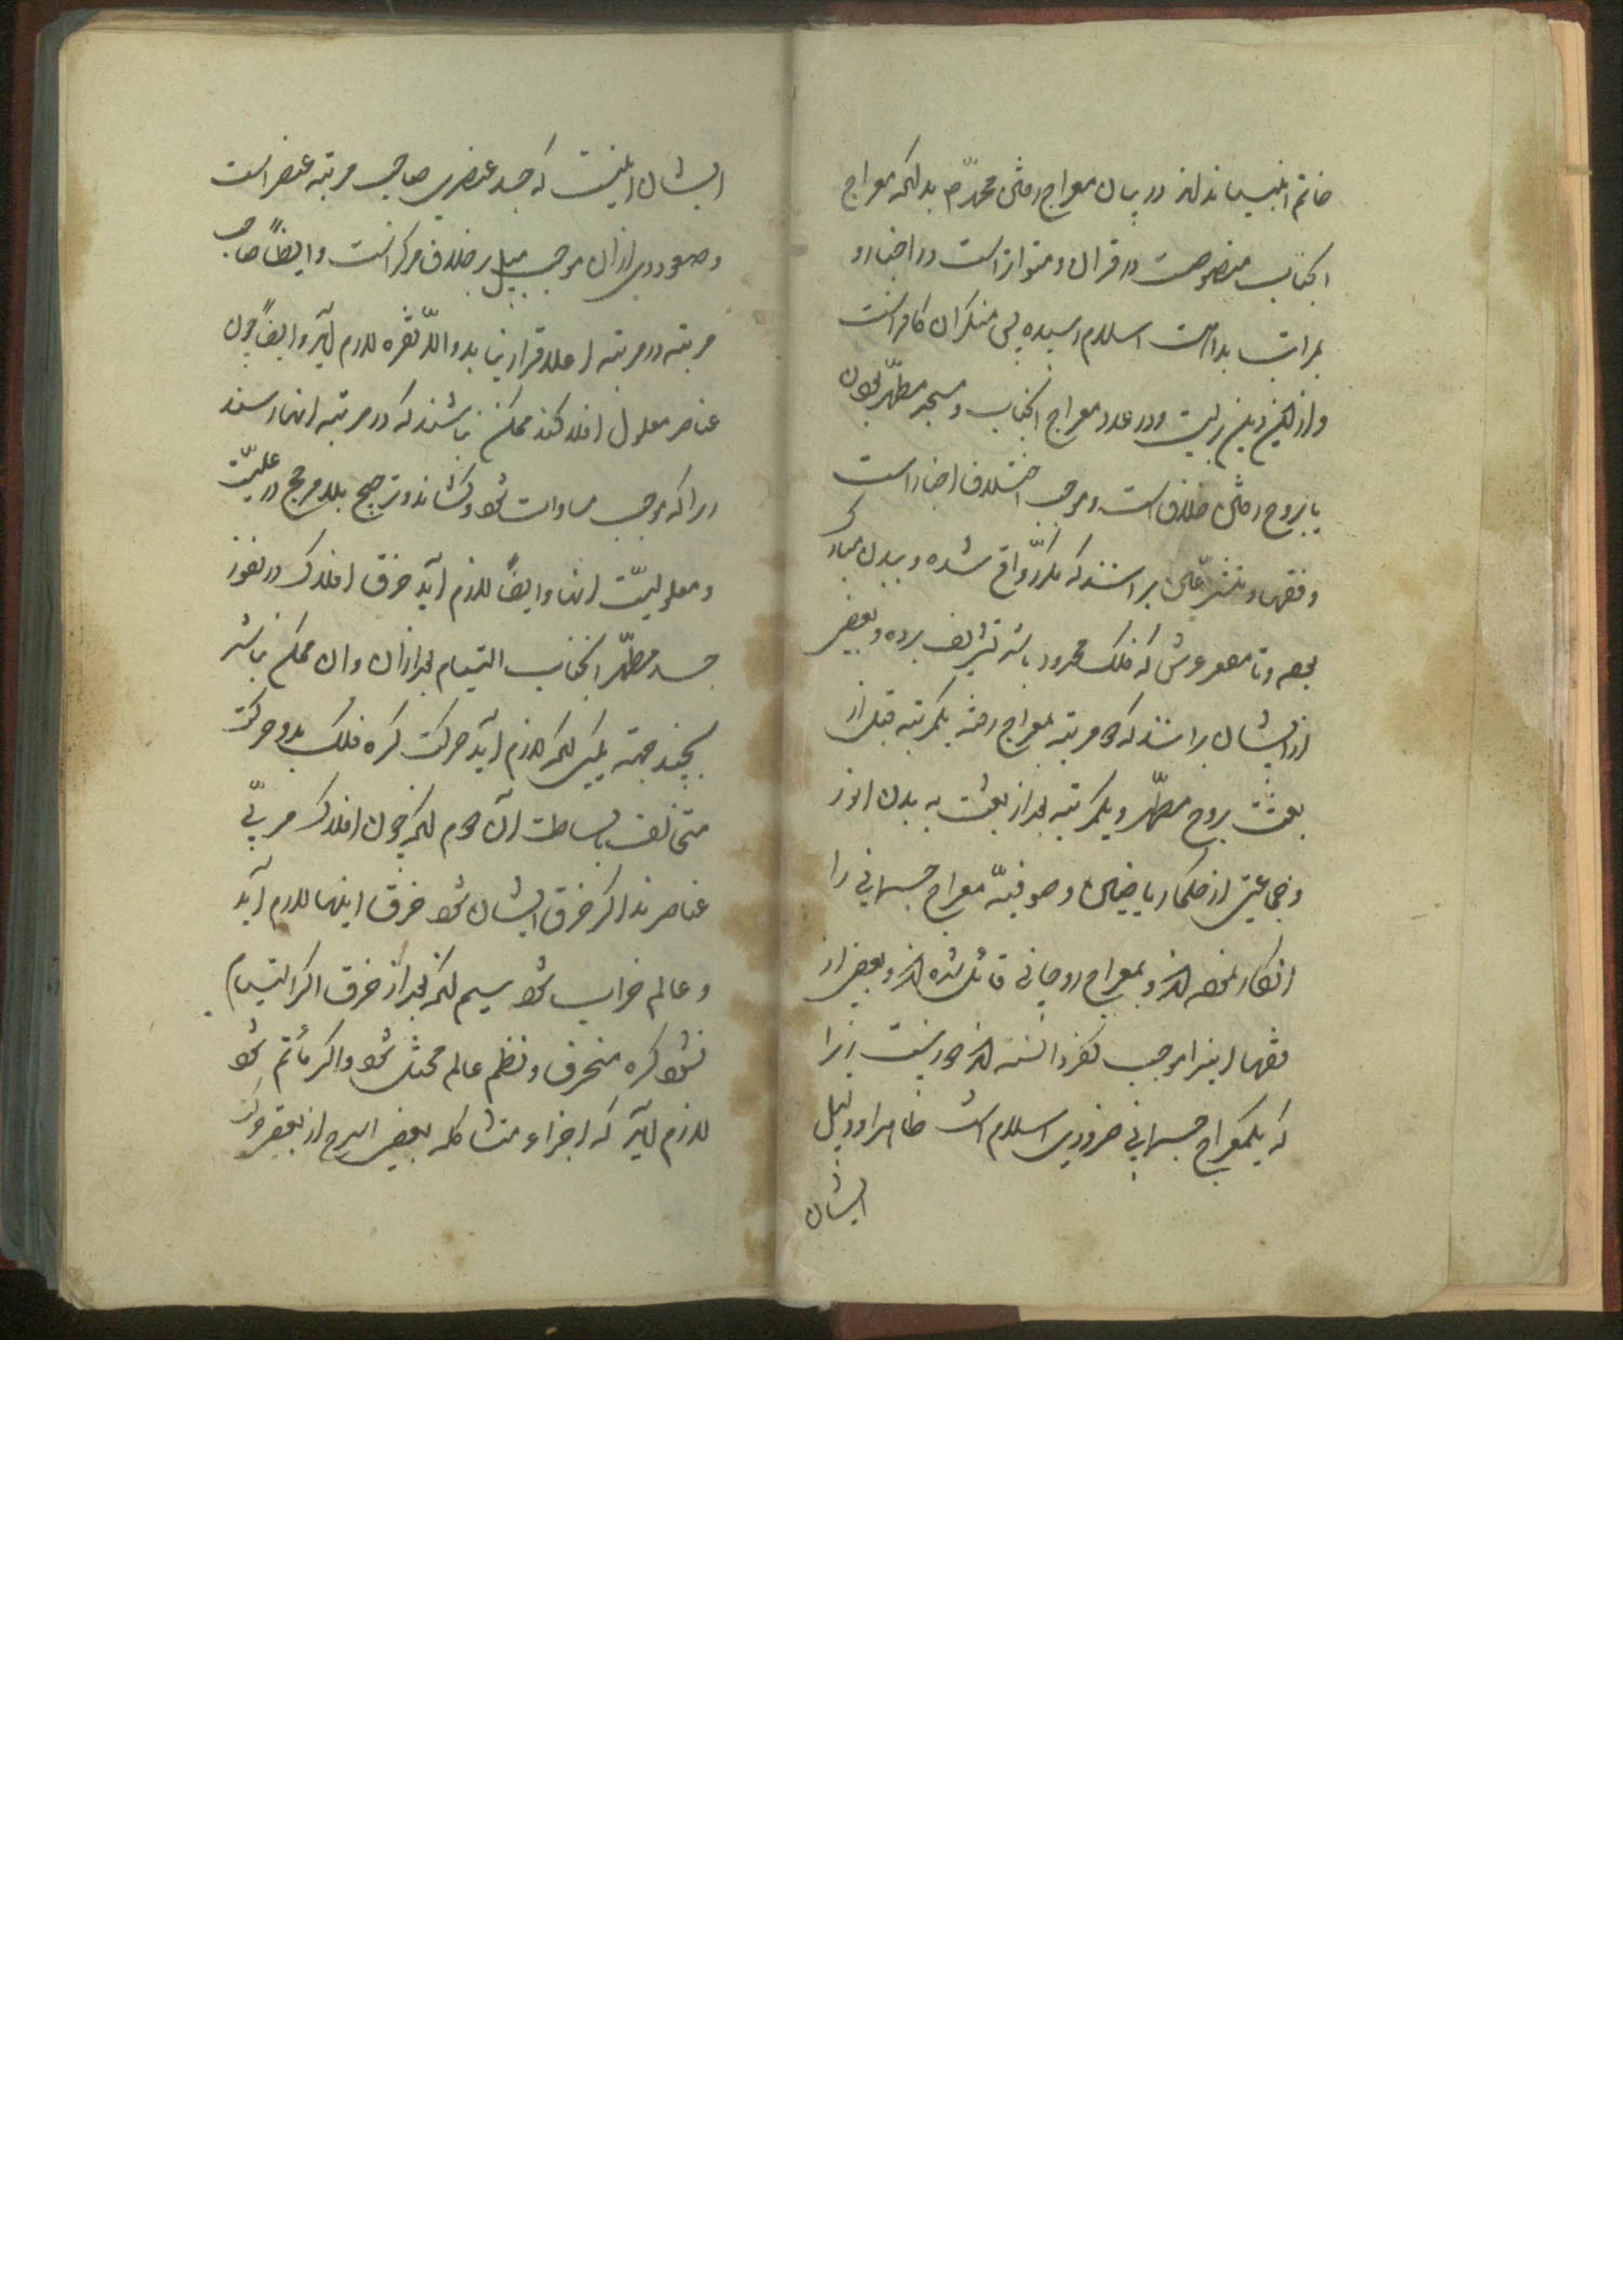 خاتم انبیااند در بیان معراج محمد ص بدانکه معراج
انجناب منصوصست در قران و متواتر است در اخبار و
بمراتب بداهت اسلام رسیده پس منکر ان کافر است
و از این دین نیست و در عدد معراج انجناب و بجسد مطهر بودن
یا بروح خلاف است و موجب اختلاف اخبار است
و فقها و متشرعین برانند که مکرر واقع شده و ببدن مبارک
بوده و تا مقعر عرش که فلک محدود باشد تشریف برده و بعضی
از ایشان برانند که دو مرتبه بمعراج رفته یکمرتبه قبل از
بعثت بروح مطهر و یکمرتبه بعد از بعثت به بدن انور
و جماعتی از حکما ریاضیین و صوفیه معراج جسمانی را
انکار نموده اند و بمعراج روحانی قائل شده اند و بعضی از
فقها اینرا موجب کفر دانسته اند زیرا
که یکمعراج جسمانی ضروری اسلام است ظاهرا و دلیل
ایشان
ایشان اینست که جسد عنصری صاحب مرتبه عنصر است
و صعود وی از ان موجب میل بر خلاف مرکز است و ایضا صاحب
مرتبه در مرتبه اعلا قرار نیابد والا طفره لازم آید و ایضا چون
عناصر معلول افلاکند ممکن نباشند که در مرتبه انها رسند
زیرا که موجب مساوات شود و ترجیح بلا مرجح در علیت
و معلولیت انها و ایضا لازم آید خرق افلاک در نفوذ
جسد مطهر انجناب التیام بعد از ان و ان ممکن نباشد
بچند جهته یکی انکه لازم آید حرکت کره فلک بدو حرکت
متخالف بساطت آن دوم انکه چون افلاک مربی
عناصرند اگر خرق ایشان شود خرق اینها لازم آید
و عالم خراب شود سیم انکه بعد از خرق اگر التیام
نشود کره منحرف و نظم عالم مختل شود و اگر ملتئم شود
لازم آید که اجزاء متشاکله بعضی اسرع از بعض